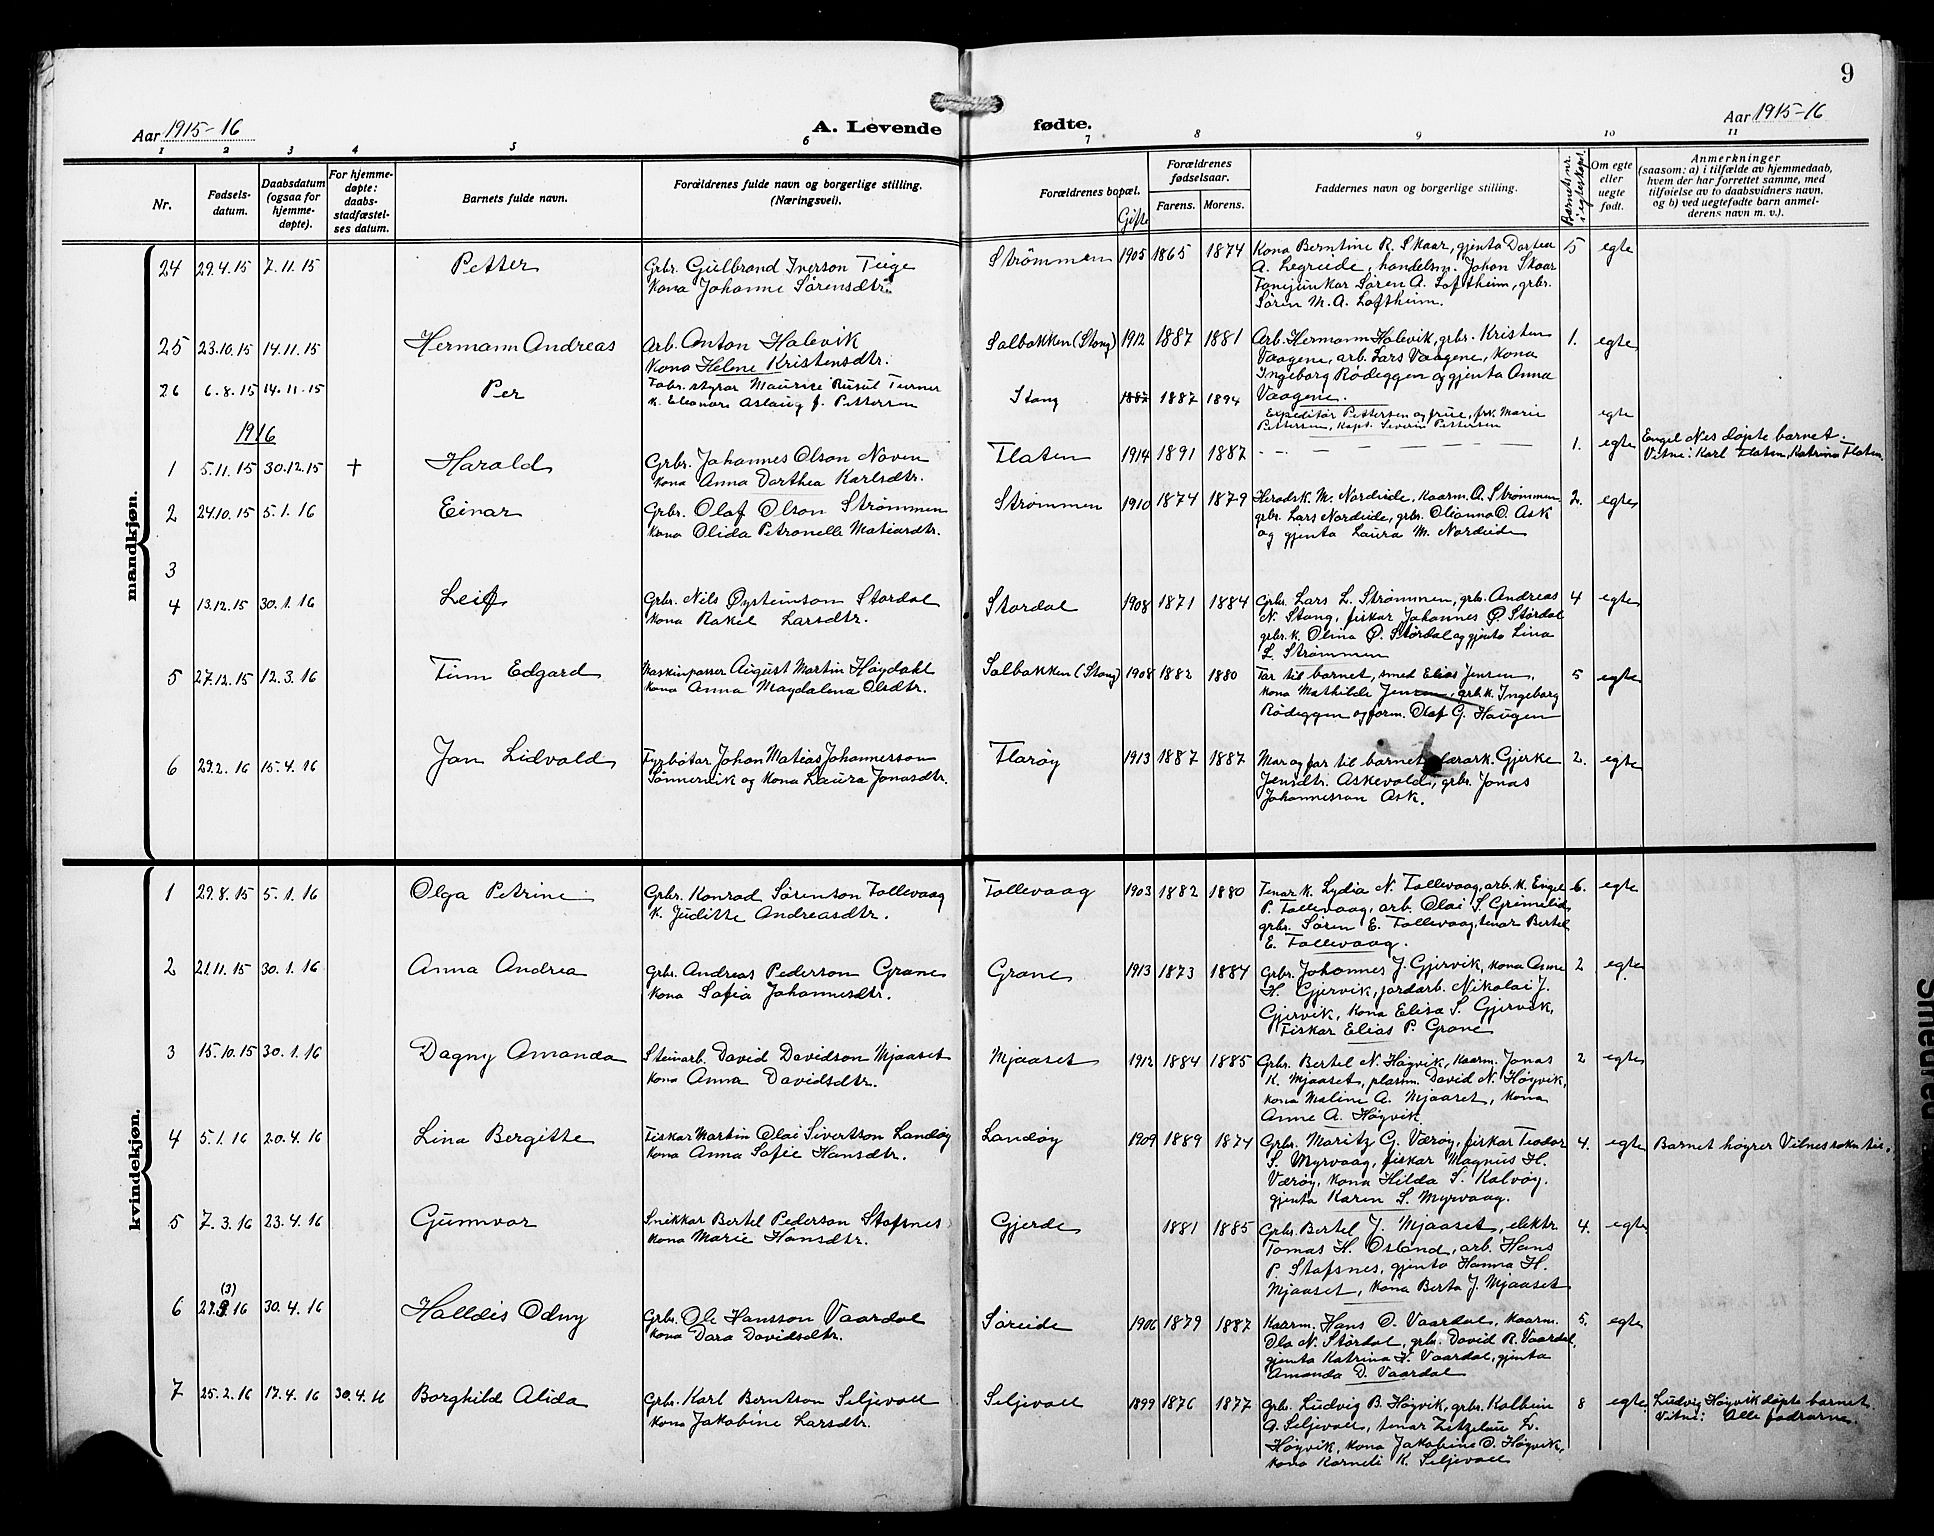 9
Aar 1915-16
A. Levende
fødte.
Aar 1915-16
1 2 3 4 5 6 7 8 9 10 11
Nr.
Fødsels-
datum.
Daabsdatum
(ogsaa for
hjemme-
døpte).
For hjemme-
døpte:
daabs-
stadfæstel-
ses datum.
Barnets fulde navn.
Forældrenes fulde navn og borgerlige stilling.
(Næringsvei).
Forældrenes bopæl.
Gifte
Forældrenes
fødselsaar.
Farens. Morens.
Faddernes navn og borgerlige stilling.
Barnets nr.
i egteskapet.
Om egte
eller
uegte
født.
Anmerkninger
(saasom: a) i tilfælde av hjemmedaab,
hvem der har forrettet samme, med
tilføielse av to daabsvidners navn.
og b) ved uegtefødte barn anmel-
derens navn m. v.).
mandkjøn.
24 29.4.15 7.11.15 Petter
Grbr. Gulbrand Iverson Teige
Kona Johanne Sørensdtr.
Strømmen 1905 1865 1874
Kona Berntine R. Skaar, gjenta Dortea
A. Legreide, handelsm. Johan Skaar
Fanejunkar Søren A. Loftheim, grbr.
Søren M. A. Loftheim.
5 egte
25 23.10.15 14.11.15 Hermann Andreas
Arb. Anton Halevik
Kona Helene Kristensdtr.
Salbakken (Stang) 1912 1887 1881
Arb. Hermann Halevik, grbr. Kristen
Vaagene, arb. Lars Vaagene, kona
Ingeborg Rødeggen og gjenta Anna
Vaagene.
1. egte
26 6.8.15 14.11.15 Per
Fabr. styrar Maurice Rusul Turner
k. Eleonore Aslaug f. Pettersen
Stang 1887 1887 1894
Expeditør Pettersen og frue, frk. Marie
Pettersen, Kapt. Severin Pettersen
egte
1916
1 5.11.15 30.12.15 † Harald
Grbr. Johannes Olson Noven
Kona Anna Dorthea Karlsdtr.
Flaten 1914 1891 1887
1. egte
Engel Nes døpte barnet.
Vitne: Karl Flaten, Katrina Flaten.
2 24.10.15 5.1.16 Einar
Grbr. Olaf Olson Strømmen
Kona Olida Petronelle Matiasdtr.
Strømmen 1910 1874 1879
Heradsk. M. Nordeide, kaarm. O. Strømmen
grbr. Lars Nordeide, grbr. Olianna O. Ask
og gjenta Laura M. Nordeide
2. egte
3
4 13.12.15 30.1.16 Leif
Grbr. Nils Øysteinson Stordal
Kona Rakel Larsdtr.
Stordal 1908 1871 1884
Grbr. Lars L. Strømmen, grbr. Andreas
N. Stang, fiskar Johannes P. Størdal
grbr. k. Olina P. Størdal og gjenta Lina
L. Strømmen
4 egte
5 27.12.15 12.3.16 Finn Edgard
Maskinpasser August Martin Høydahl
Kona Anna Magdalena Olsdtr.
Salbakken (Stang) 1908 1882 1880
Far til barnet, smed Elias Jensen,
kona Mathilde Jensen, grb.k. Ingeborg
Rødeggen og form. Olaf G. Haugen
5 egte
6 29.2.16 15.4.16 Jan Lidvald
Fyrbøtar Johan Matias Johannesson
Sønnervik og Kona Laura Jonasdtr.
Florøy 1913 1887 1887
Mor og far til barnet, lærark. Gjerke
Jensdtr. Askevold, grbr. Jonas
Johannesson Ask.
2. egte
kvindekjøn.
1 29.8.15 5.1.16 Olga Petrine
Grbr. Konrad Sørenson Tollevaag
K. Juditte Andreasdtr.
Tollevaag 1903 1882 1880
Tenar k. Lydia N. Tollevaag, arb. k. Engel
P. Tollevaag, arb. Olai S. Grimelid,
grbr. Søren E. Tollevaag, tenar Bertel
E. Tollevaag.
6. egte
2 21.11.15 30.1.16 Anna Andrea
Grbr. Andreas Pederson Grane
Kona Sofia Johannesdtr.
Grane 1913 1873 1884
Grbr. Johannes J. Gjervik, kona Anne
H. Gjervik, jordarb. Nikolai J.
Gjervik, kona Elisa S. Gjervik,
Fiskar Elias P. Grane
2 egte
3 15.10.15 30.1.16 Dagny Amanda
Steinarb. David Davidson Mjaaset
Kona Anna Davidsdtr.
Mjaaset 1912 1884 1885
Grbr. Bertel N. Høgvik, kaarm. Jonas
K. Mjaaset, plassm. David N. Høgvik,
kona Maline A. Mjaaset, kona
Anne A. Høgvik
2 egte
4 5.1.16 20.4.16 Lina Bergitte
Fiskar Martin Olai Sivertson Landøy
Kona Anna Sofie Hansdtr.
Landøy 1909 1889 1874
Grbr. Maritz G. Værøy, fiskar Teodor
S. Myrvaag, fiskar Magnus H.
Værøy, kona Hilda S. Kalvøy.
gjenta Karen S. Myrvaag.
4. egte
Barnet høyrer Vilnes sokn til.
5 7.3.16 23.4.16 Gunnvor
Snikkar Bertel Pederson Stafsnes
Kona Marie Hansdtr.
Gjerde 1881 1885
Grbr. Bertel J. Mjaaset, elektr.
Tomas H. Osland, arb. Hans
P. Stafsnes, gjenta Hanna H.
Mjaaset, kona Berta J. Mjaaset
4. egte
(3)
6 27.3.16 30.4.16 Halldis Odny
Grbr. Ole Hansson Vaardal
Kona Dara Davidsdtr.
Søreide 1906 1879 1887
Kaarm. Hans O. Vaardal, kaarm.
Ola N. Størdal, grbr. David R. Vaardal,
gjenta Katrina H. Vaardal, gjenta
Amanda D. Vaardal
5. egte
7 25.2.16 17.4.16 30.4.16 Borghild Alida
Grbr. Karl Berntson Seljevoll
Kona Jakobine Larsdtr.
Seljevoll 1899 1876 1877
Grbr. Ludvig B. Høgvik, grbr. Kolbein
A. Seljevoll, tenar L.
Høgvik, kona Jakobine O. Høgvik,
kona Karneli K. Seljevoll
8 egte
Ludvig Høgvik døpte barnet.
Vitne: Alle fadrarne.